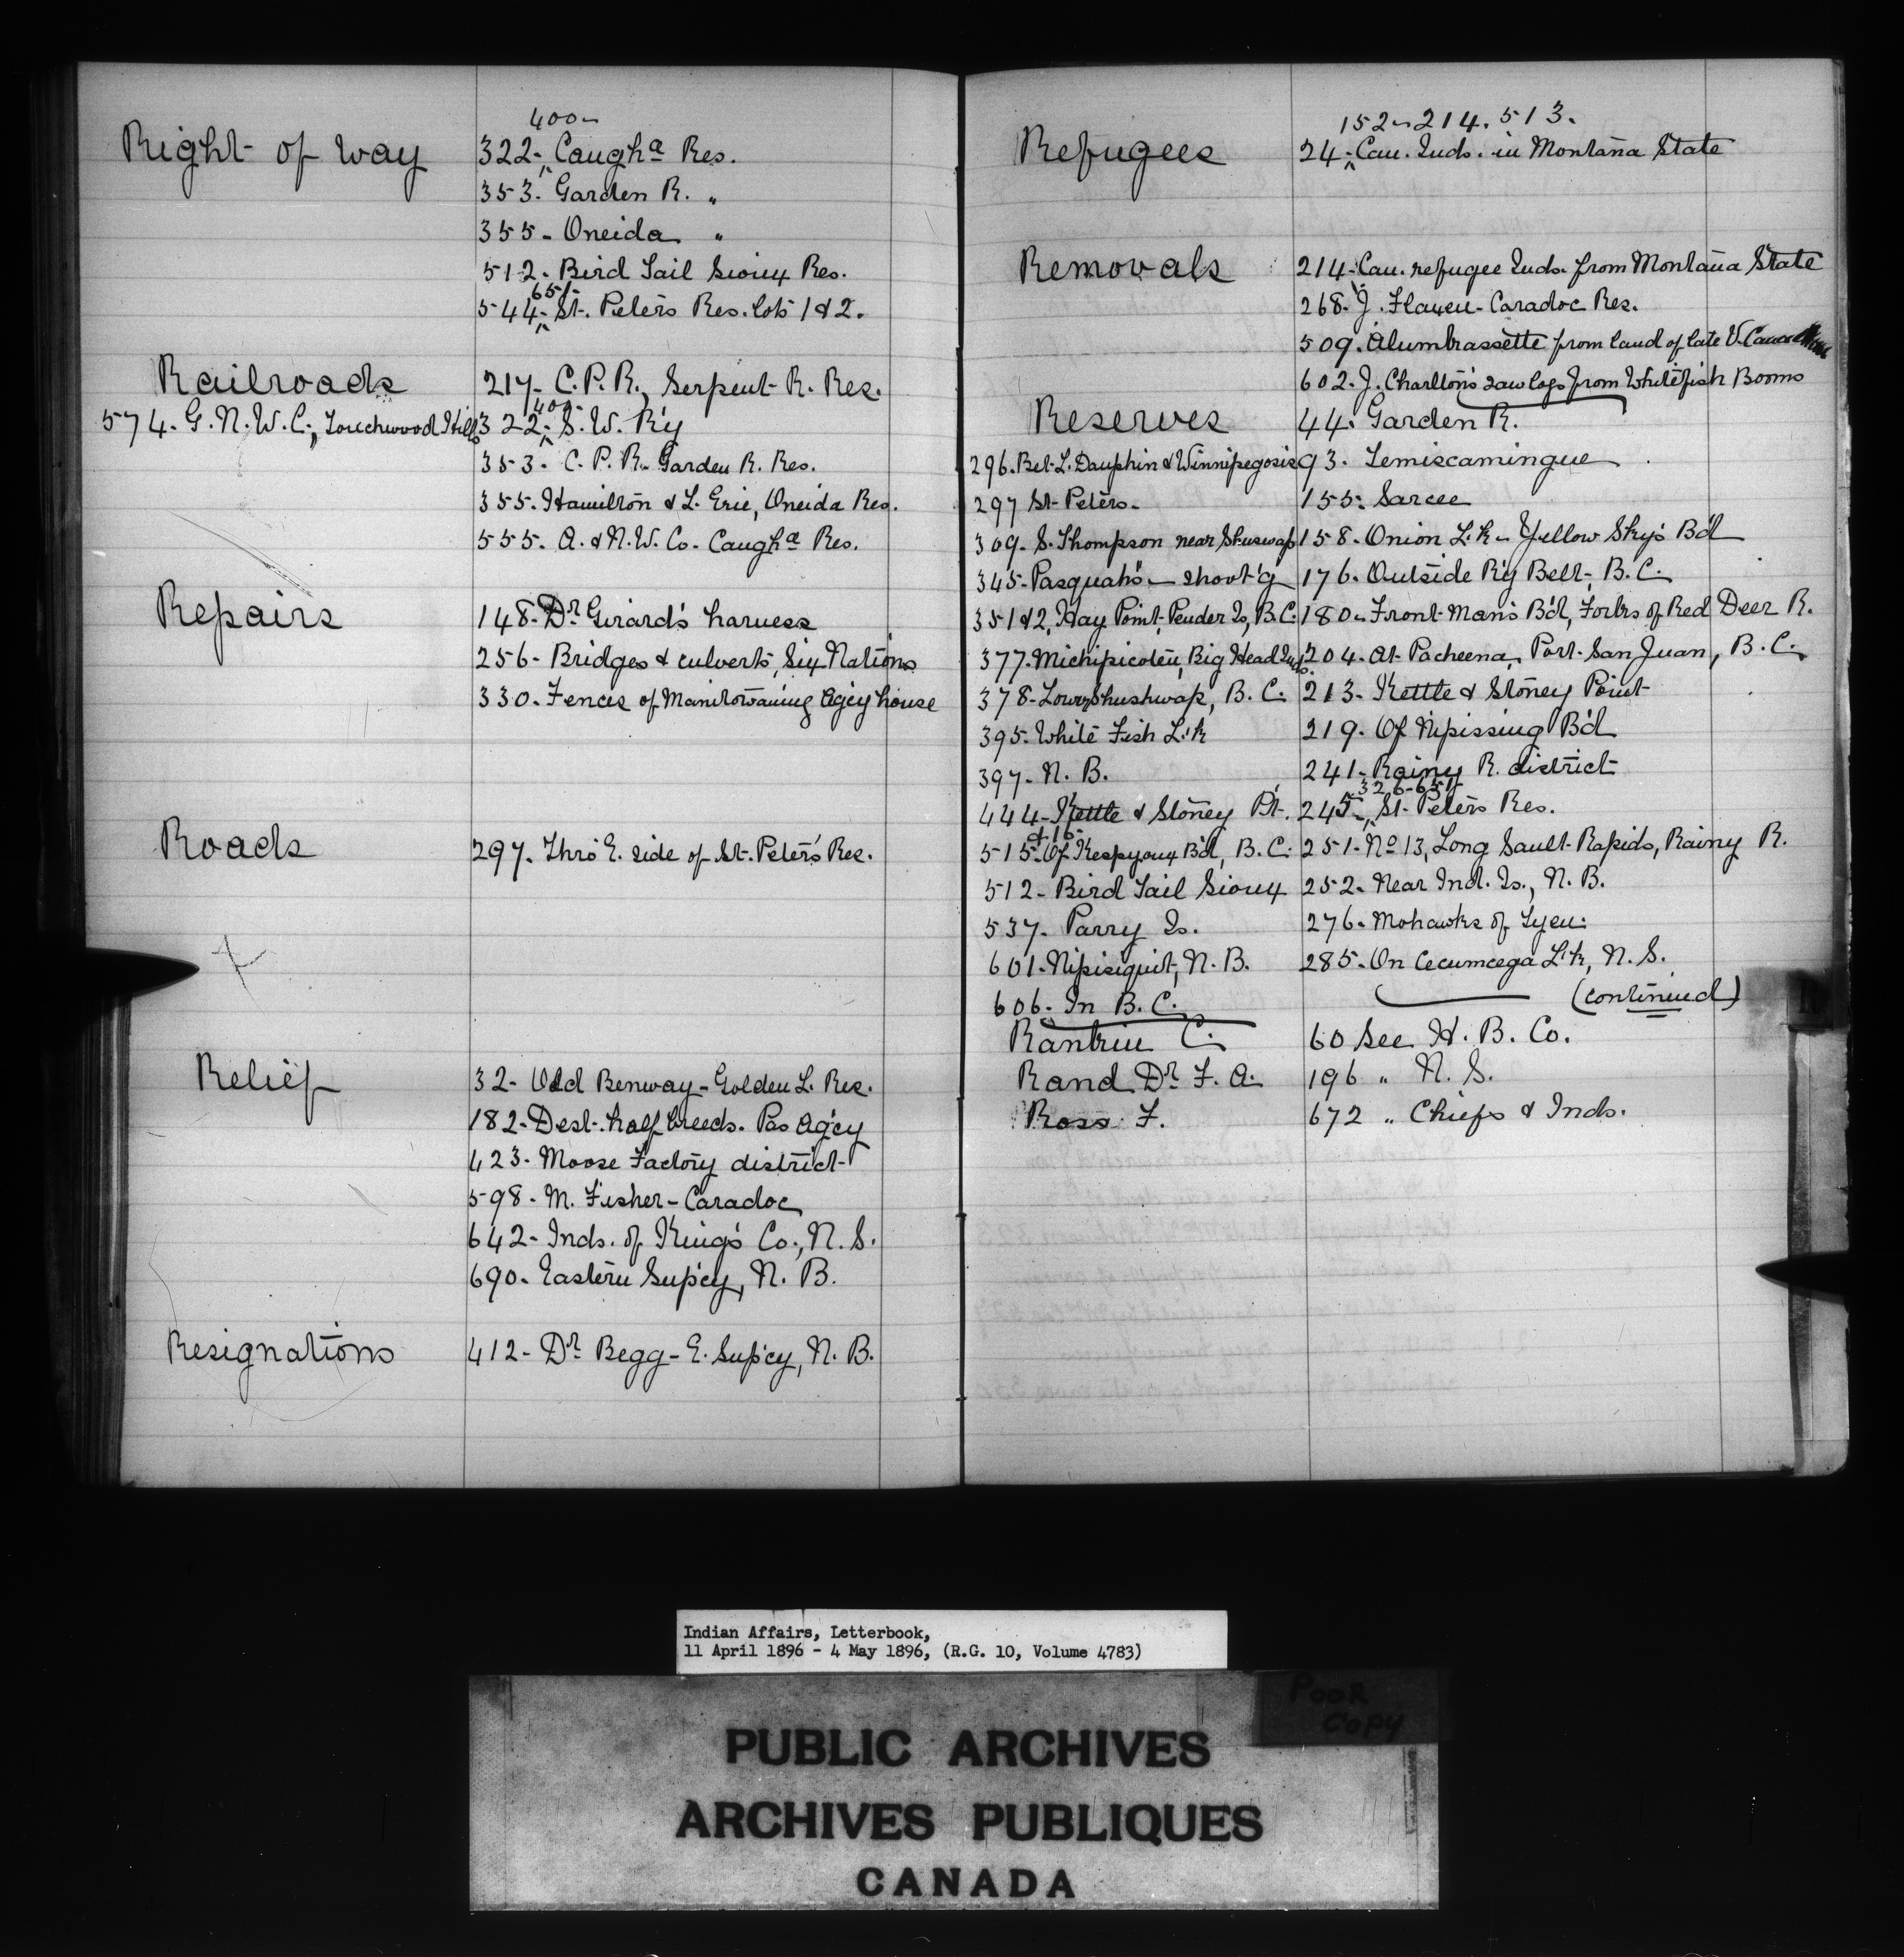 400-
Right of way 322- Caugha Res.
353. Garden R. "
355- Oneida "
512. Bird Tail Sioux Res.
651-
544- St. Peters Res. lots 1 & 2.
Railroads 217- C.P.R., Serpent R. Res.
400-
574- G.N.W.C., Touchwood Hills 322- S.W. R'y
353- C.P.R. Garden R. Res.
355. Hamilton & L. Erie, Oneida Res.
555. A. & N.W. Co. Caugha Res.
Repairs 148- Dr Girard's harness
256- Bridges & culverts, Six Nations
330. Fences of Manitowaning Ag'cy house
Roads 297. Thro E. side of St. Peter's Res.
Relief 32- Benway - Golden L. Res.
182- Dest. half breeds. Pas Ag'cy
423- Moose Factory district
598- M. Fisher - Caradoc
642- Inds. of King's Co., N.S.
690. Eastern Sup'cy, N.B.
Resignations 412- Dr Begg - E. Sup'cy, N.B.
152-214. 513.
Refugees 24- Can. Inds. in Montana State
Removals 214- Can. refugee Inds. from Montana State
268. J. Caradoc Res.
509. from land of late V.
602. J. Charlton's saw logs from Whitefish Booms
Reserves 44. Garden R.
296. Bet. L. Dauphin & Winnipegosis 93. Temiscamingue
297 St. Peters- 155. Sarcee
309- S. Thompson near Shuswap 158- Onion L'k - Yellow Sky's B'd
345- Pasquah's - shoot'g 176. Outside R'y Belt, B.C.
351 & 2, Hay Point, Pender Is, B.C. 180- Front Man's B'd, Forks of Red Deer R.
377. Michipicoten, Big Head Inds. 204. At Pacheena, Port San Juan, B.C.
378- Lower Shushwap, B.C. 213. Kettle & Stoney Point
395. White Fish L'k 219. Of Nipissing B'd
397- N.B. 241- Rainy R. district
326-651
444- Kettle & Stoney Pt. 245- St. Peters Res.
& 16-
515- Of B'd, B.C. 251- No 13, Long Sault Rapids, Rainy R.
512- Bird Tail Sioux 252. Near Ind. Is., N.B.
537. Parry Is. 276. Mohawks of Tyen.
601- Nipisiquit, N.B. 285. On L'k, N.S.
606. In B.C. (continued)
C. 60 See H.B. Co.
Rand Dr F. A. 196 " N.S.
Ross F. 672 " Chiefs & Inds.
Indian Affairs, Letterbook,
11 April 1896 - 4 May 1896, (R.G. 10, Volume 4783)
POOR
COPY
PUBLIC ARCHIVES
ARCHIVES PUBLIQUES
CANADA